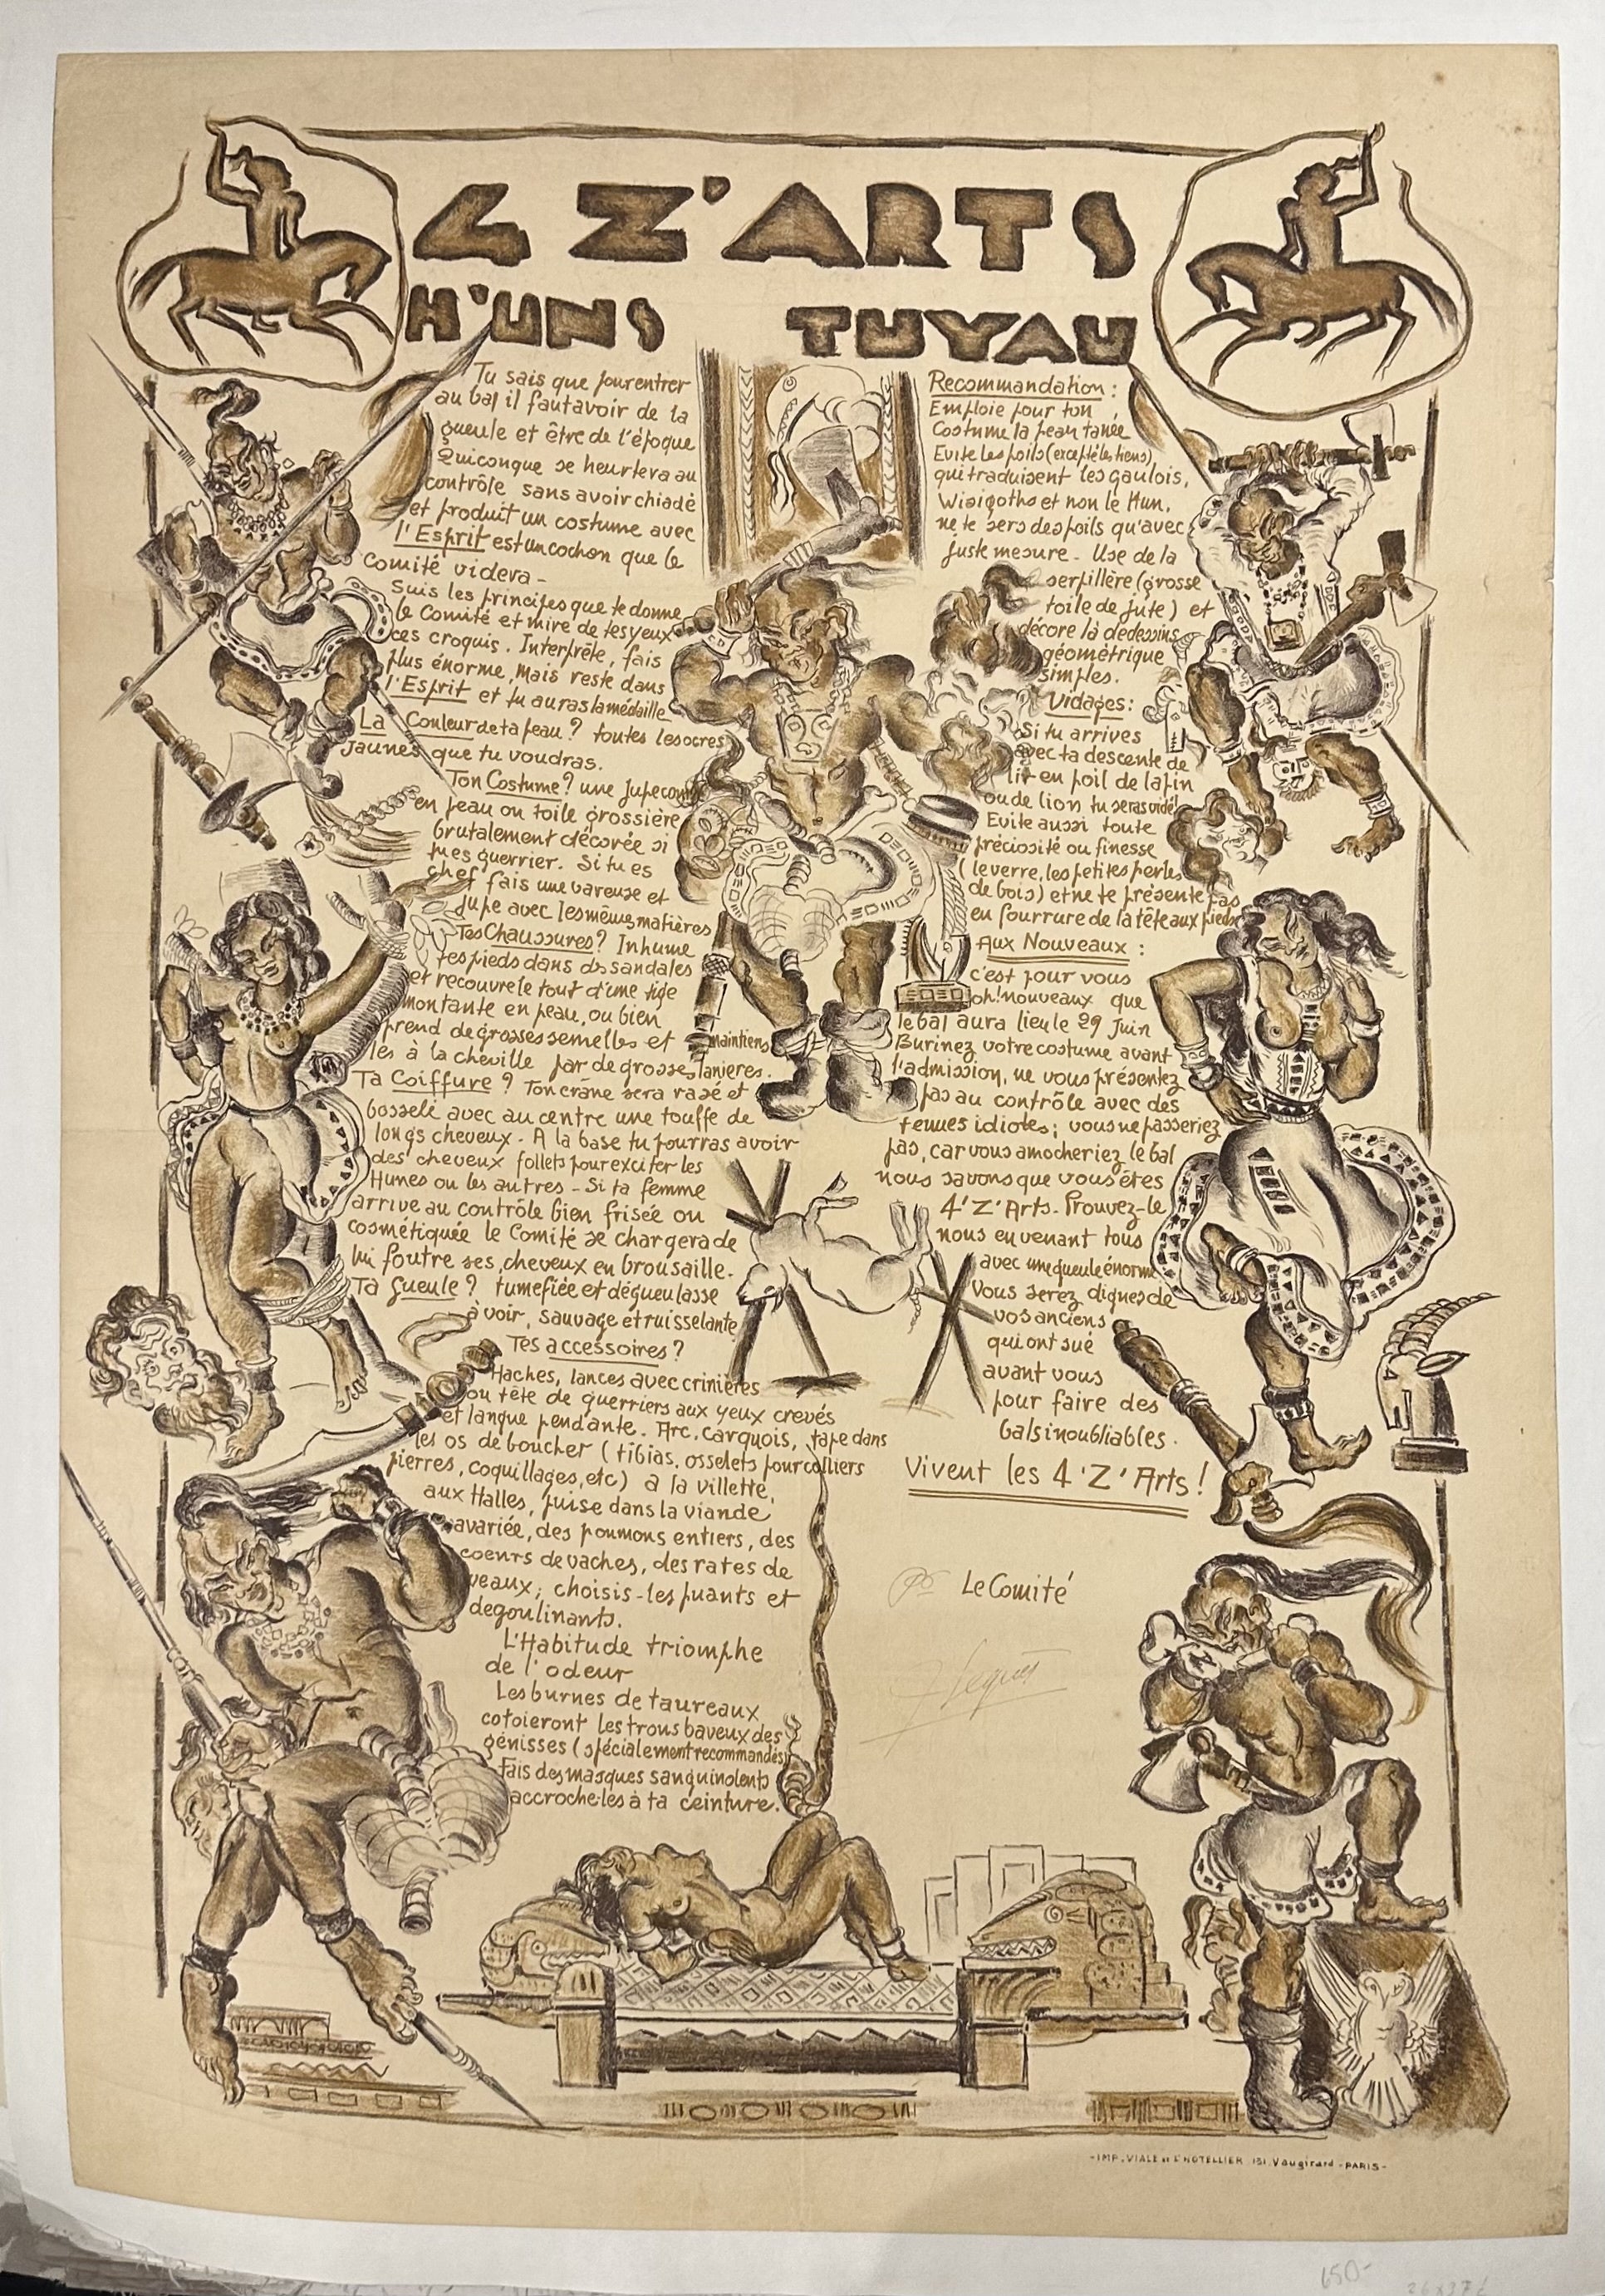 4 Z'ARTS
H'UNS TUYAU
Tu sais que pour entrer
au bal il faut avoir de la
gueule et être de l'époque
Quiconque se heurtera au
contrôle sans avoir chiadé
et produit un costume avec
l'Esprit est un cochon que le
Comité videra -
Suis les principes que te donne
le Comité et mire de tes yeux
ces croquis. Interprête, fais
plus énorme, mais reste dans
l'Esprit et tu auras la médaille
La Couleur de ta peau ? toutes les ocres
jaunes que tu voudras.
Ton Costume ? une jupe
en peau ou toile grossière
brutalement décorée si
tu es guerrier. Si tu es
chef fais une vareuse et
jupe avec les mêmes matières
Tes Chaussures ? Inhume
tes pieds dans des sandales
et recouvre le tout d'une tige
montante en peau, ou bien
prend de grosses semelles et maintiens
les à la cheville par de grosses lanieres.
Ta Coiffure ? Ton crâne sera rasé et
bosselé avec au centre une touffe de
longs cheveux. A la base tu pourras avoir
des cheveux follets pour exciter les
Hunes ou les autres - Si ta femme
arrive au contrôle bien frisée ou
cosmétiquée le Comité se chargera de
lui foutre ses cheveux en brousaille.
Ta Gueule ? tumefiée et dégueulasse
à voir, sauvage et ruisselante
Tes accessoires ?
Haches, lances avec crinières
ou tête de guerriers aux yeux crevés
et langue pendante. Arc, carquois, tape dans
les os de boucher (tibias, osselets pour colliers
pierres, coquillages, etc) a la villette,
aux Halles, puise dans la viande
avariée, des poumons entiers, des
coeurs de vaches, des rates de
veaux; choisis-les puants et
degoulinants.
L'Habitude triomphe
de l'odeur
Les burnes de taureaux
cotoieront les trous baveux des
génisses (spécialement recommandés)
Fais des masques sanguinolents
accroche-les à ta ceinture.
Recommandation :
Emploie pour ton
Costume la peau tanée
Evite les poils (excepté les tiens)
qui traduisent les gaulois,
Wisigoths et non le Hun.
ne te sers des poils qu'avec
juste mesure - Use de la
serpillère (grosse
toile de jute) et
décore là de dessins
géométrique
simples.
Vidages :
Si tu arrives
avec ta descente de
lit en poil de lapin
ou de lion tu seras vidé!
Evite aussi toute
préciosité ou finesse
(le verre, les petites perles
de bois) et ne te présente pas
en fourrure de la tête aux pieds
Aux Nouveaux :
c'est pour vous
oh! nouveaux que
le bal aura lieu le 29 Juin
Burinez votre costume avant
l'admission, ne vous présentez
pas au contrôle avec des
tenues idiotes ; vous ne passeriez
pas, car vous amocheriez le bal
nous savons que vous êtes
4'Z'Arts. Prouvez-le
nous en venant tous
avec une gueule énorme
Vous serez dignes de
vos anciens
qui ont sué
avant vous
pour faire des
bals inoubliables.
Vivent les 4'Z'Arts !
Le Comité
-IMP. VIALE et L'HOTELLIER 131. Vaugirard - PARIS-
650-